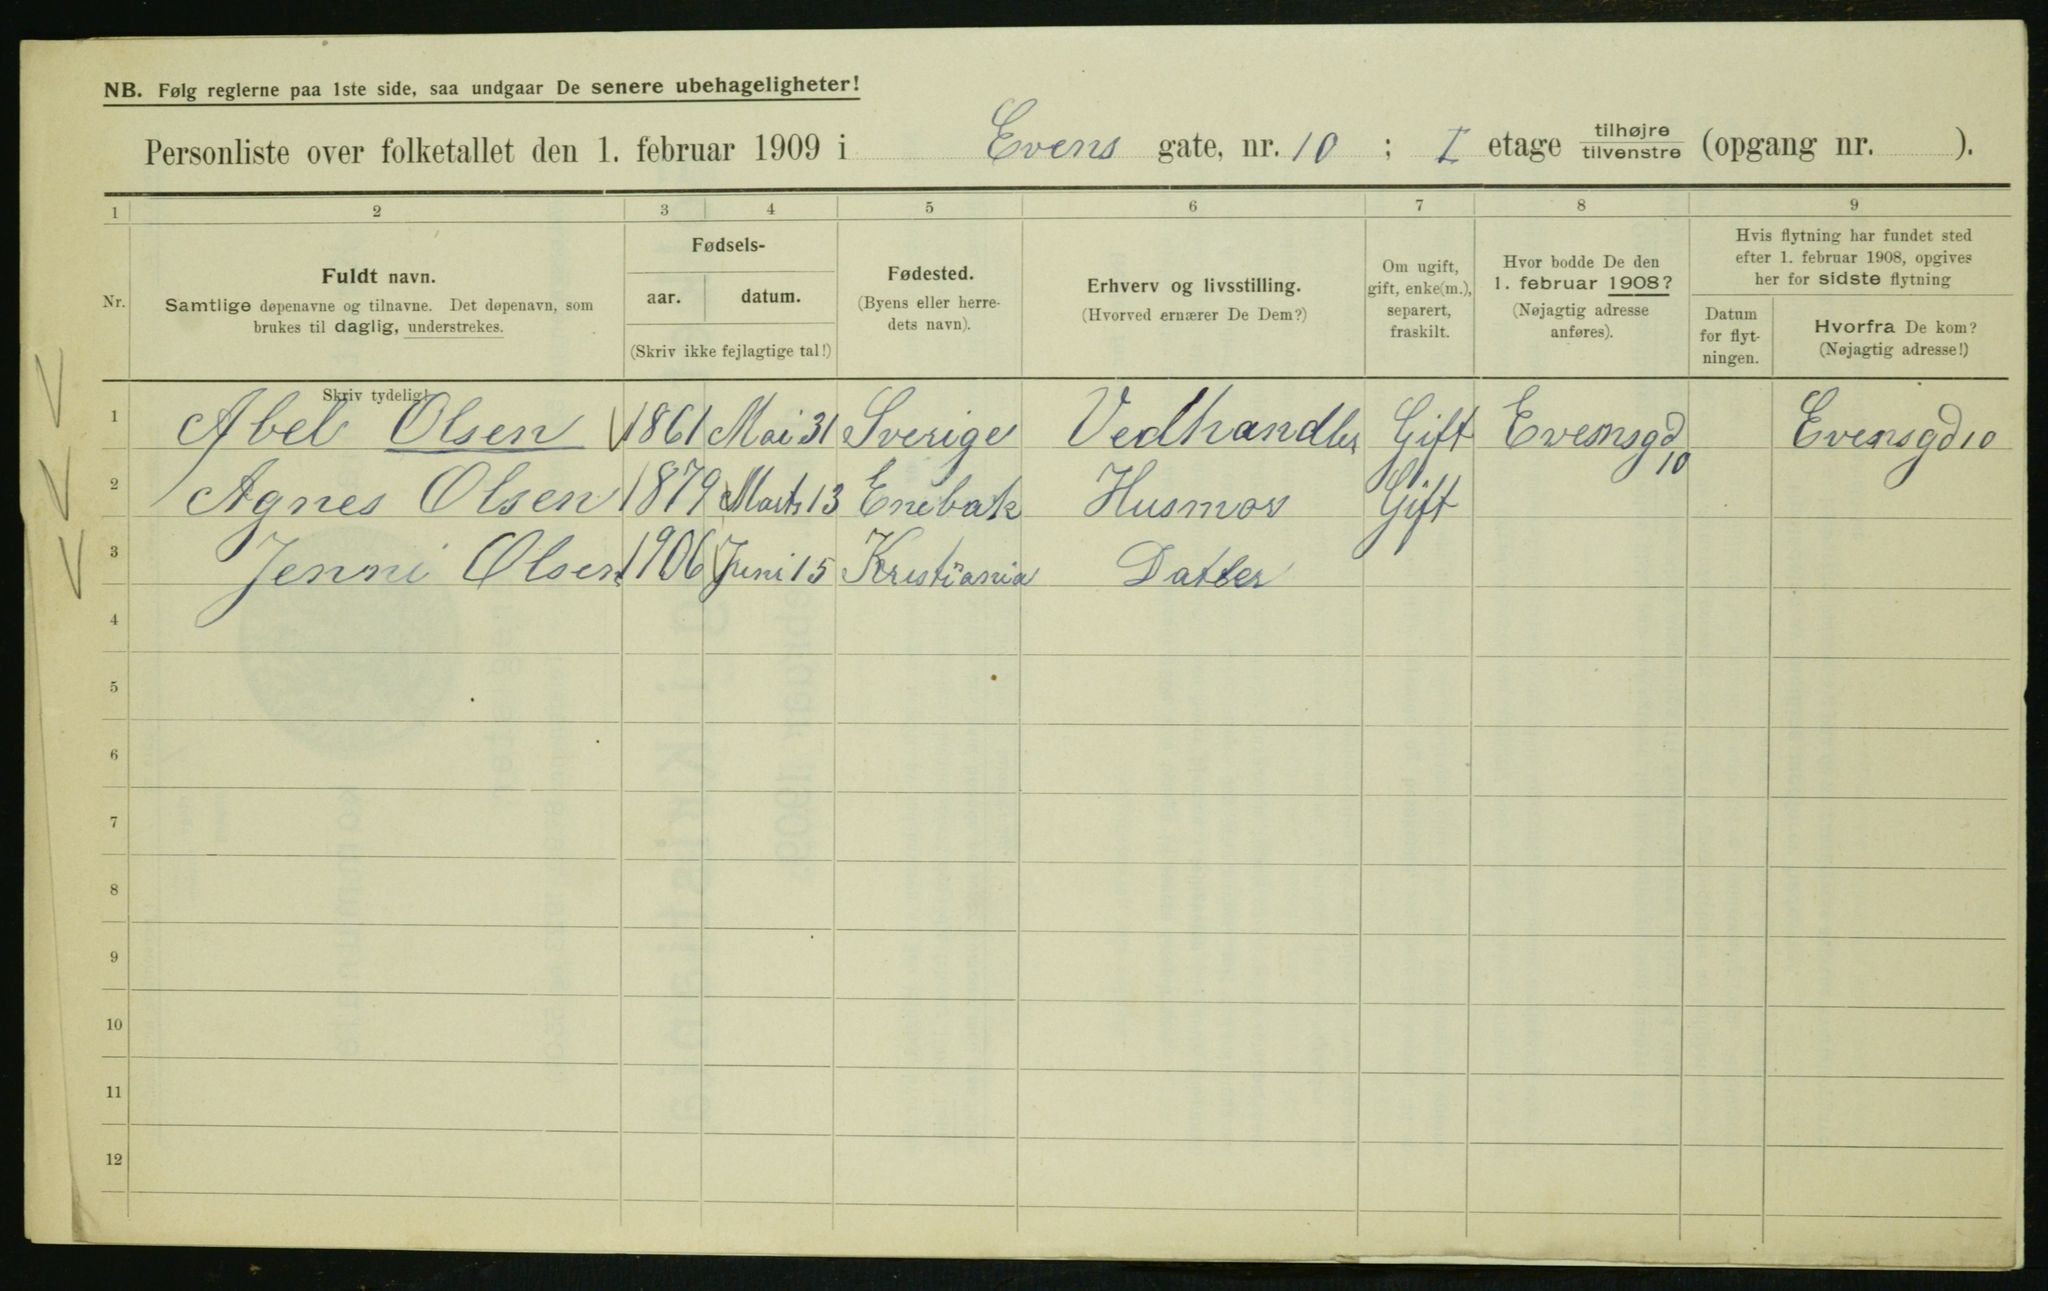 NB. Følg reglerne paa 1ste side, saa undgaar De senere ubehageligheter!
Personliste over folketallet den 1. februar 1909 i Evens gate, nr. 10 ; I etage tilhøjre tilvenstre (opgang nr. ).
1 2 3 4 5 6 7 8 9
Nr.
Fuldt navn.
Samtlige døpenavne og tilnavne. Det døpenavn, som
brukes til daglig, understrekes.
Fødsels-
aar. datum.
(Skriv ikke fejlagtige tal!)
Fødested.
(Byens eller herre-
dets navn).
Erhverv og livsstilling.
(Hvorved ernærer De Dem?)
Om ugift,
gift, enke(m.),
separert,
fraskilt.
Hvor bodde De den
1. februar 1908?
(Nøjagtig adresse
anføres).
Hvis flytning har fundet sted
efter 1. februar 1908, opgives
her for sidste flytning
Datum
for flyt-
ningen.
Hvorfra De kom?
(Nøjagtig adresse!)
Skriv tydelig!
1 Abel Olsen 1861 Mai 31 Sverige Vedhandler Gift Evensgd 10 Evensgd 10
2 Agnes Olsen 1879 Marts 13 Enebak Husmor Gift
3 Jenni Olsen 1906 Juni 15 Kristiania Datter
4
5
6
7
8
9
10
11
12